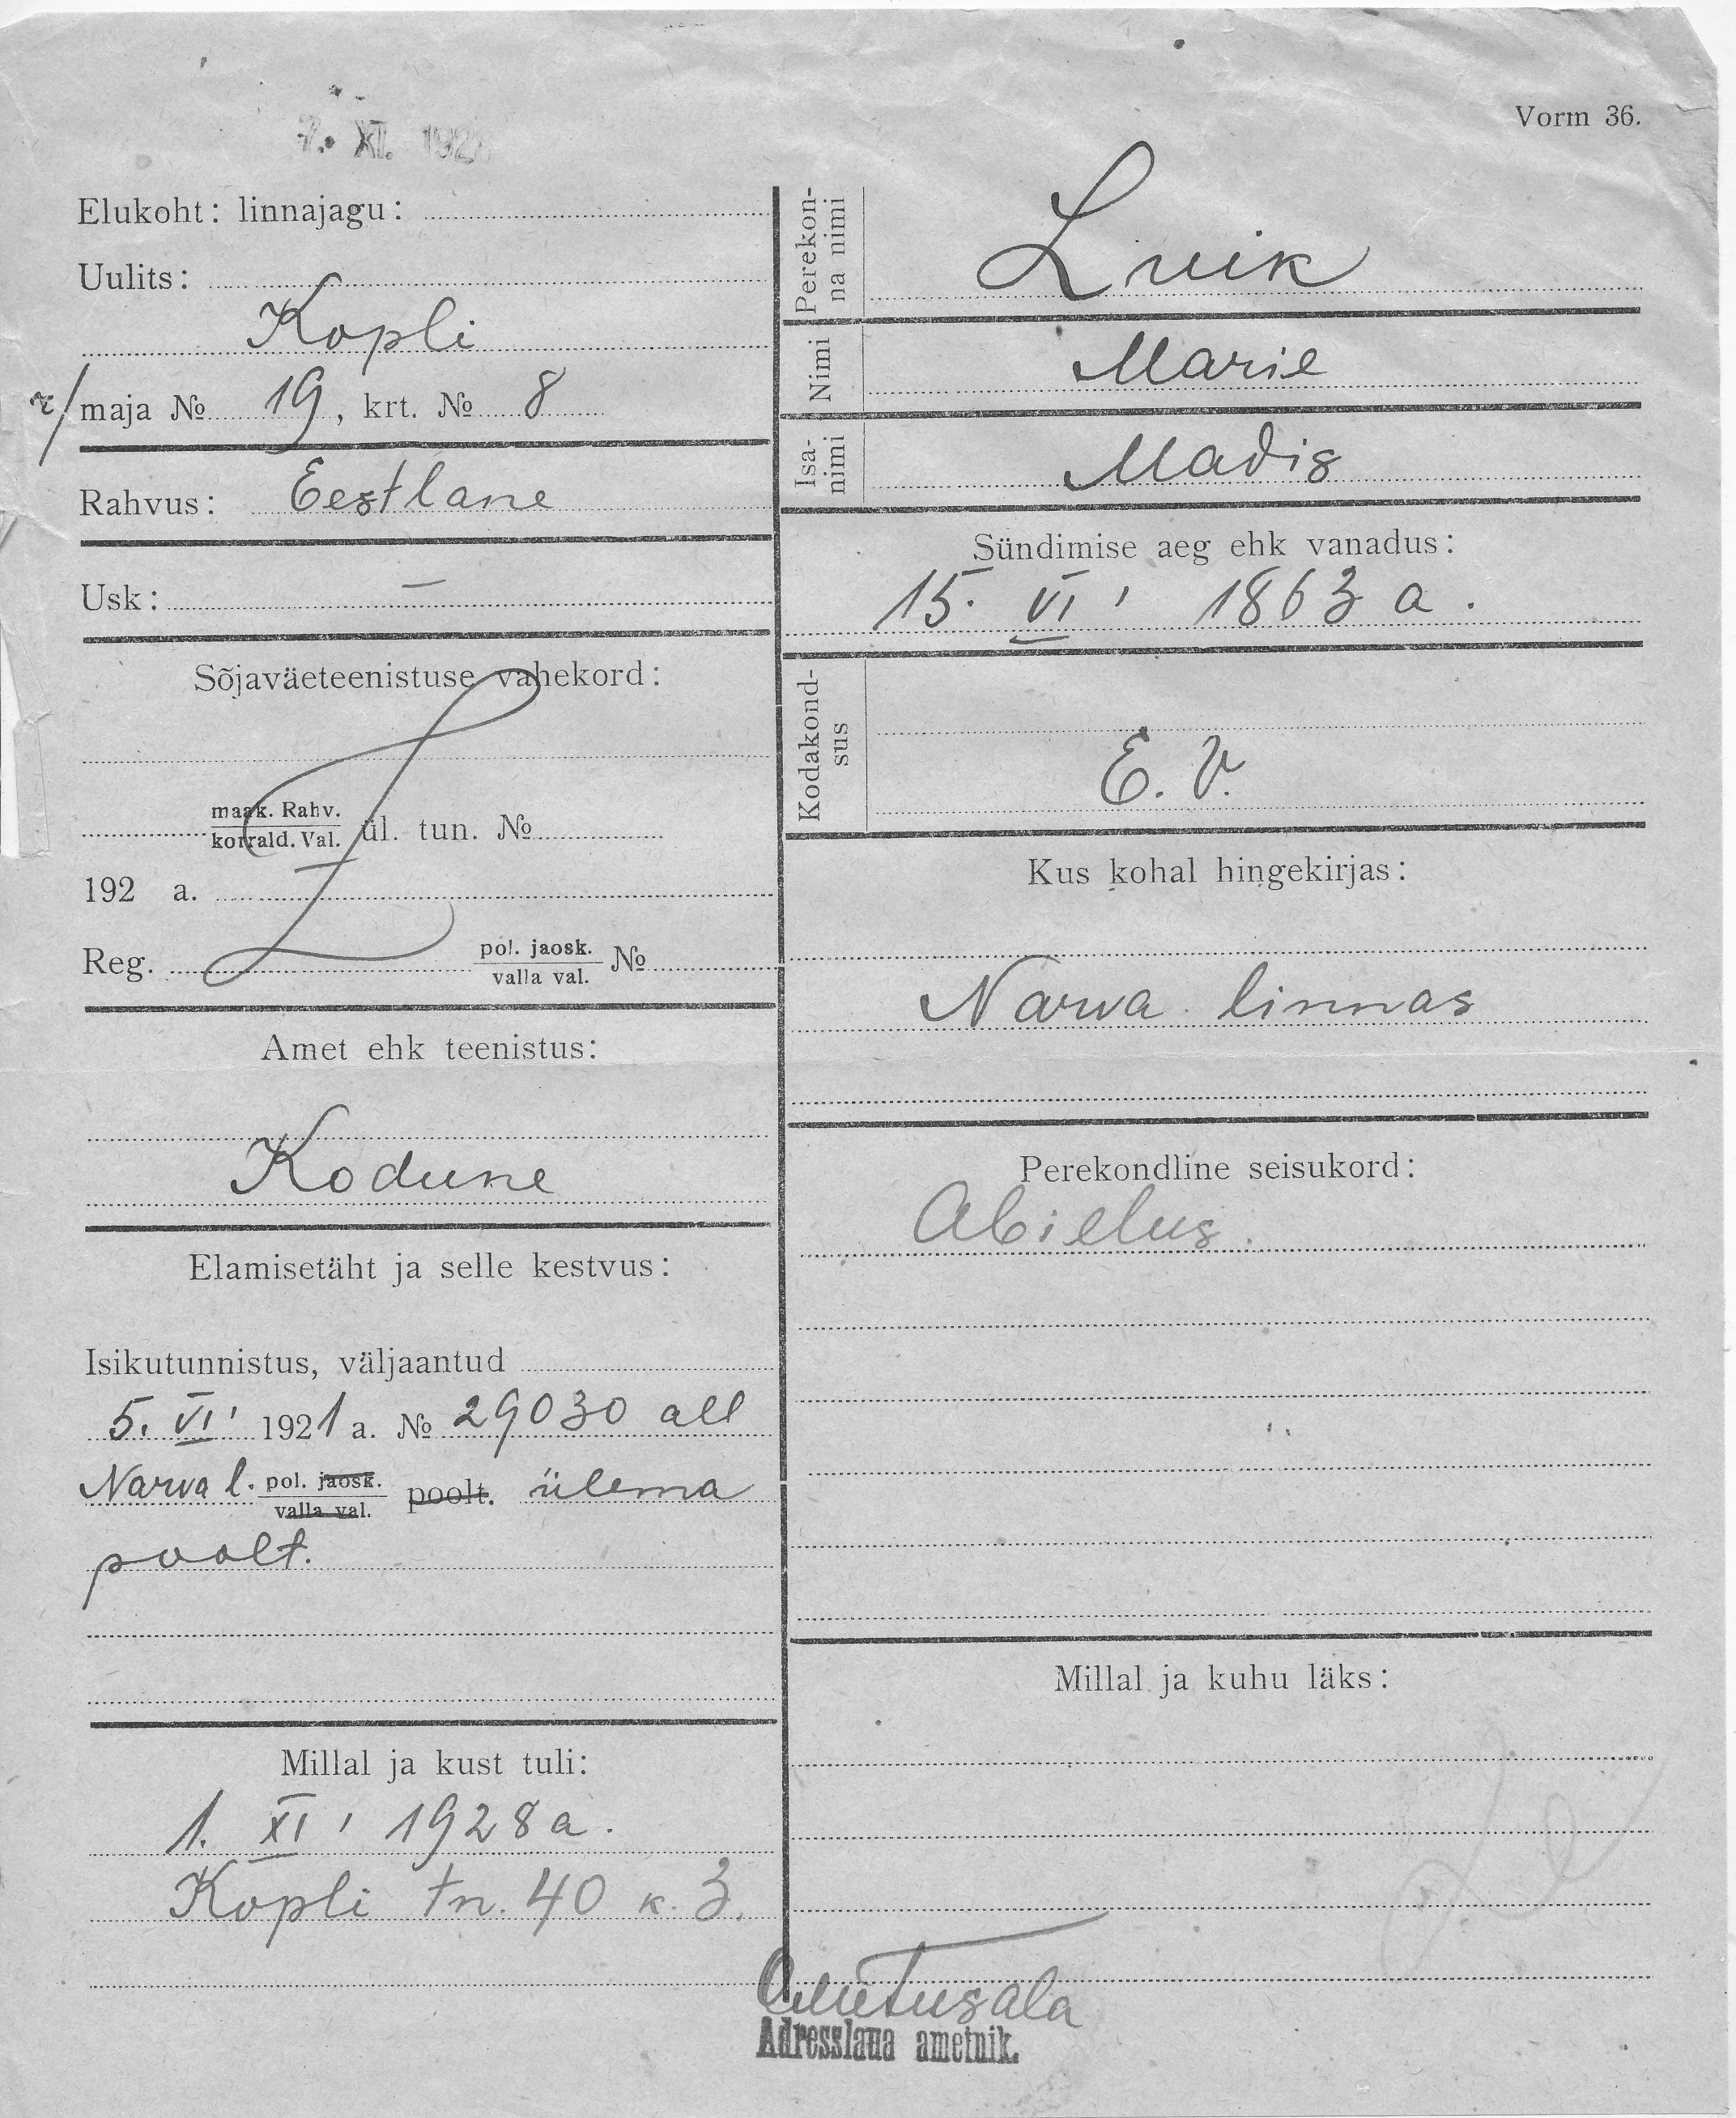 7. XI. 192
Vorm 36.
Elukoht: linnajagu:
Uulits:
Kopli
maja № 19, krt. № 8
Rahvus: Eestlane
Usk: —
Sõjaväeteenistuse vahekord:
maak. Rahv.
korrald. Val. ül. tun. №
192 a.
Reg. pol. jaosk. №
valla val.
Amet ehk teenistus:
Kodune
Elamisetäht ja selle kestvus:
Isikutunnistus, väljaantud
5. VI 1921 a. № 29030 all
Narva l. pol. jaosk. poolt. ülema
valla val.
poolt.
Millal ja kust tuli:
1. XI 1928 a.
Kopli tn. 40 k. 3.
Perekon-
na nimi
Luik
Nimi
Marie
Isa-
nimi
Madis
Sündimise aeg ehk vanadus:
15. VI 1863 a.
Kodakond-
sus
E. V.
Kus kohal hingekirjas:
Narva linnas
Perekondline seisukord:
Abielus.
Millal ja kuhu läks:
Adresslaua ametnik.